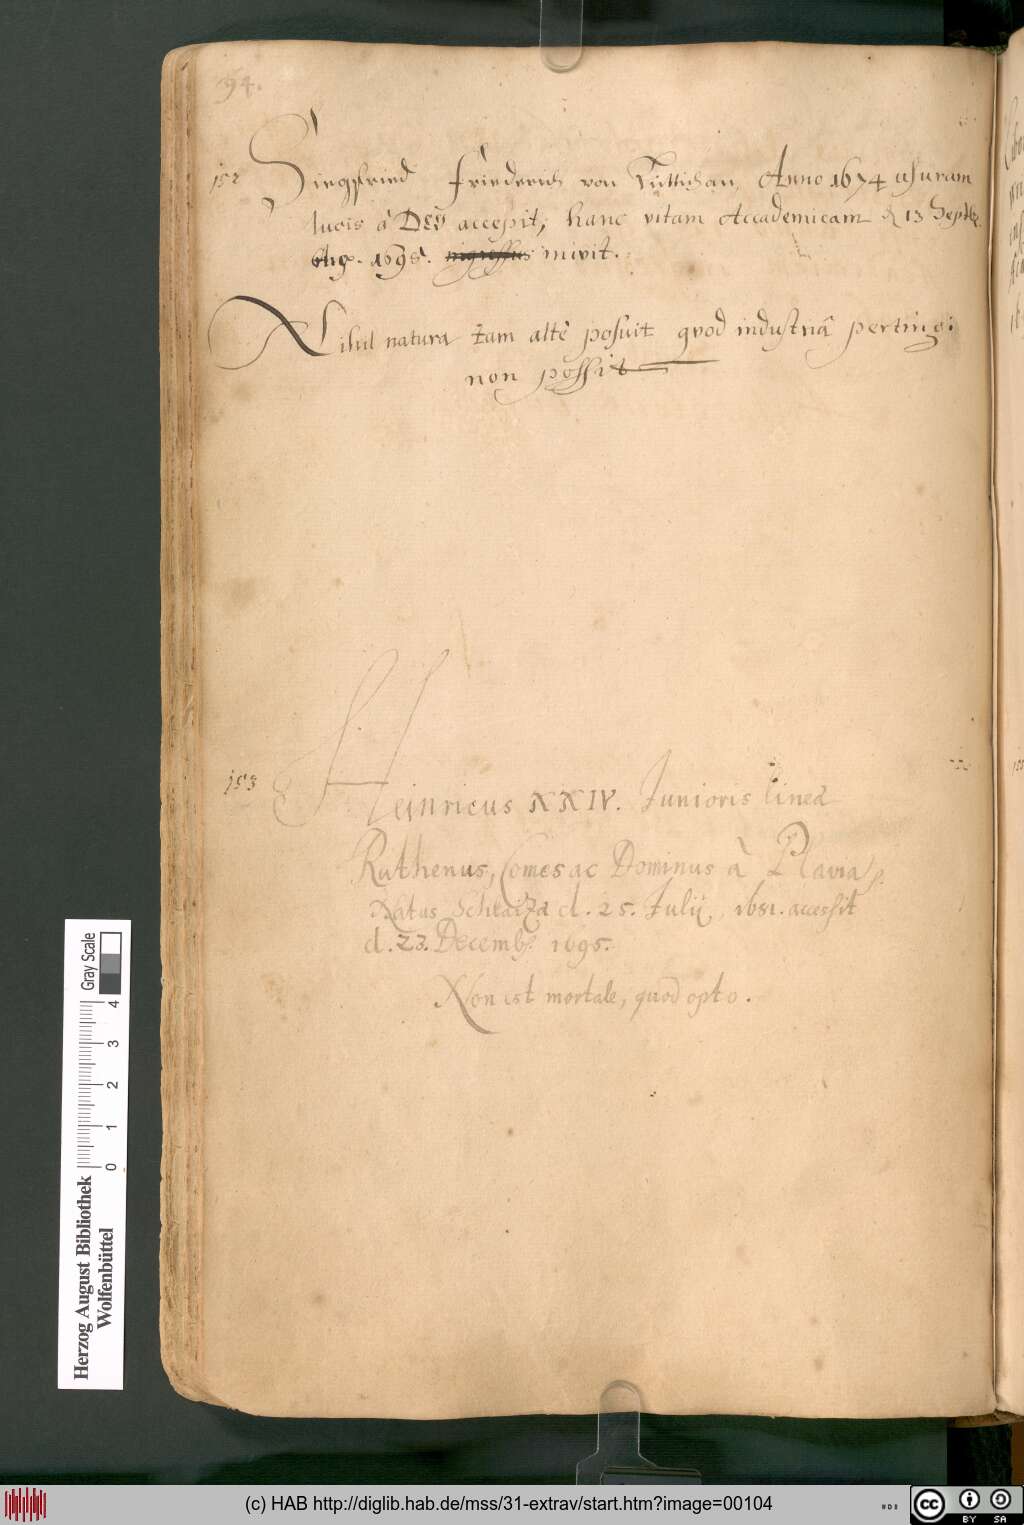 94.
152 Siegfried Friederich von Tüttichau, Anno 1674 usuram
lucis â DEO accepit, hanc vitam Accademicam d 13 Septb
1695. inivit.
Nihil natura tam altè posuit quod industriâ perting:
non possit
153
Heinricus XXIV. Junioris lineæ
Ruthenus, Comes ac Dominus à Plavia p.
Natus Schlaizæ d. 25. Julij, 1681. accessit
d. 23. Decemb. 1695.
Non est mortale, quod opto.
Herzog August Bibliothek
Wolfenbüttel
0 1 2 3 4
Gray Scale
(c) HAB http://diglib.hab.de/mss/31-extrav/start.htm?image=00104
cc BY SA